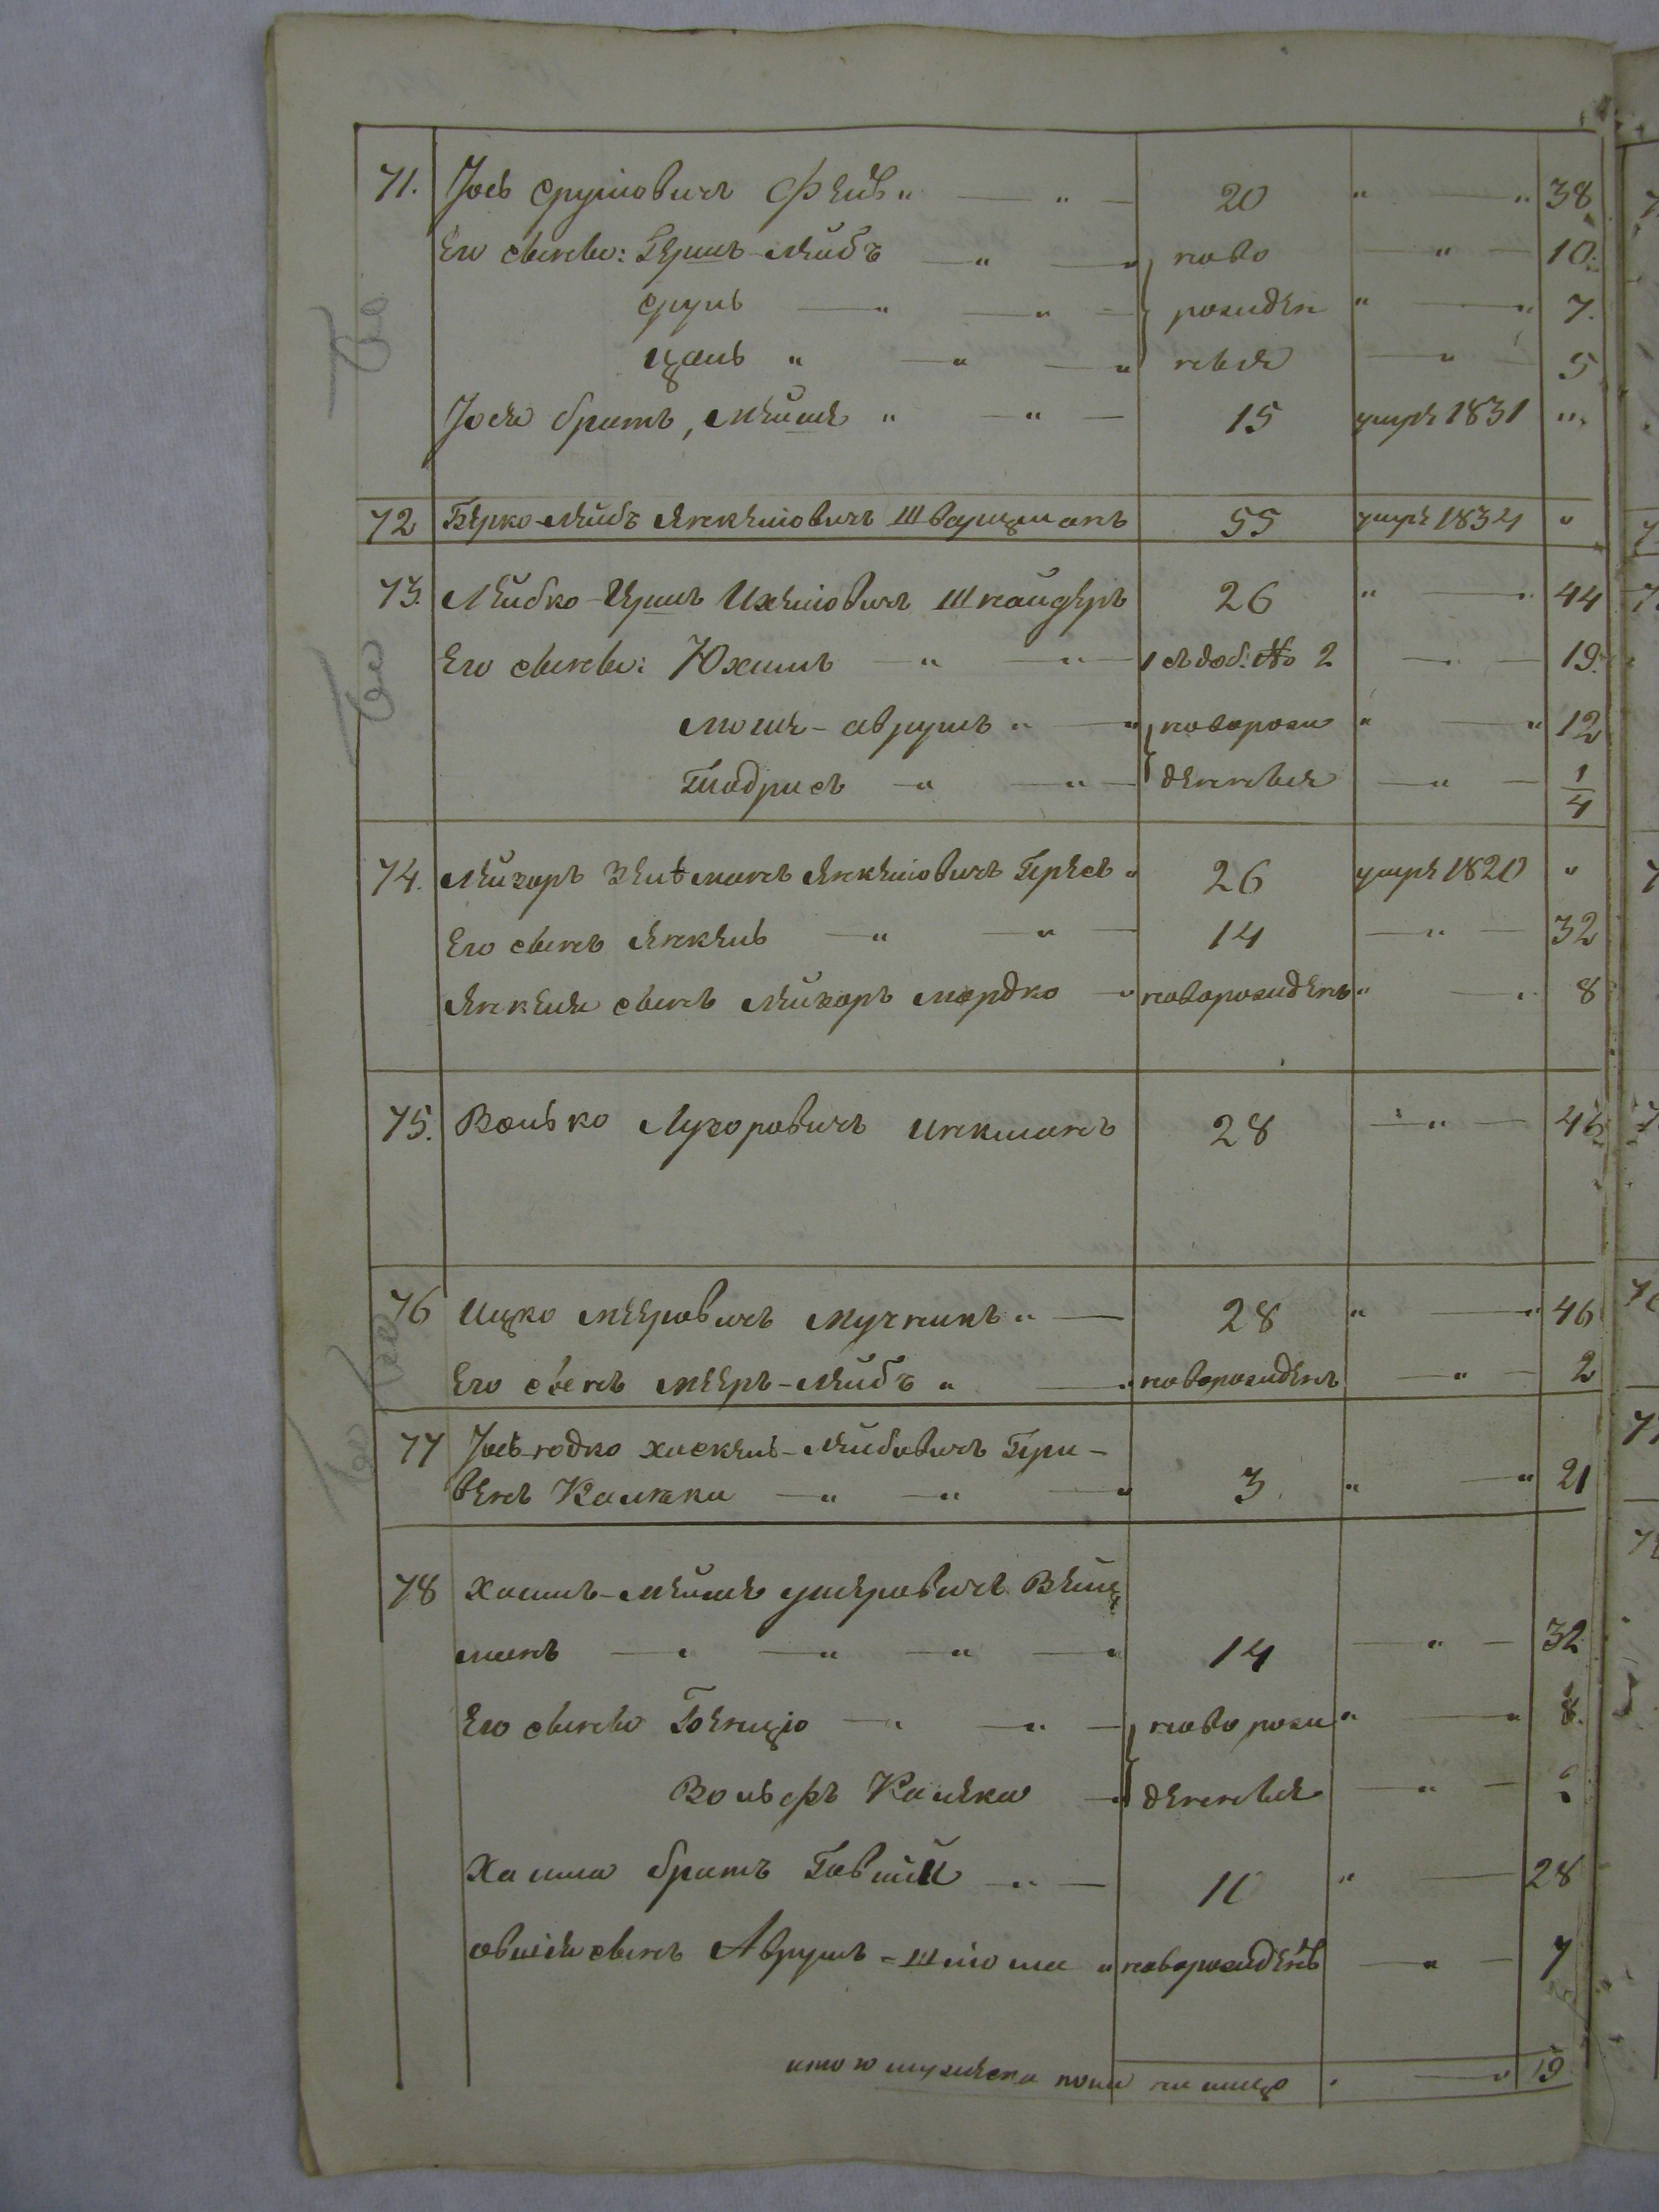 71. Іось Сруловичъ Фель " — " — 20 " — " 38
Его сыновья: Гершъ-Лейбъ — " — " ново — " — 10.
Сруль — " — " — рожден " — " 7.
Цаль " — " — " ные — " — 5
Іося братъ, Мейше " — " — 15 умре 1831 "
72 Берко-Лейбъ Янкелiовичъ Шварцманъ 55 умре 1834 "
73. Лейбко-Гершъ Ихелiовичъ Шнайдеръ 26 " — " 44
Его сыновья: Юхимъ — " — " — съ доб: № 2 — " — 19.
Мошe-Аврумъ " — " новорож " — " 12
Тодрисъ — " — " — денные — " — 1/4
74. Лейзоръ Зельманъ Янкелiовичъ Гресъ " 26 умре 1820 "
Его сынъ Янкель — " — " — 14 — " — 32
Янкеля сынъ Лейзоръ Мордко — " новорожденъ " — " 8
75. Волько Лузоровичъ 28 — " — 46
76 Ицко Мееровичъ Мучникъ " — 28 " — " 46
Его сынъ Мееръ-Лейбъ " — " новорожденъ — " — 2
77 Іось-Годко Хаскель-Лейбовичъ Гри-
венъ — " — " — " 3 " — " 21
78 Хаимъ-Мейше Умеровичъ Вейц
манъ — " — " — " — " 14 — " — 32
Его сыновья — " — " — ново рож " — " 8.
Вольфъ — " денные — " —
Хаима братъ — " — " — 28
сынъ Аврумъ-Шлiома " новорожденъ — " — 7
итого мужеска пола на лицо " — " 19